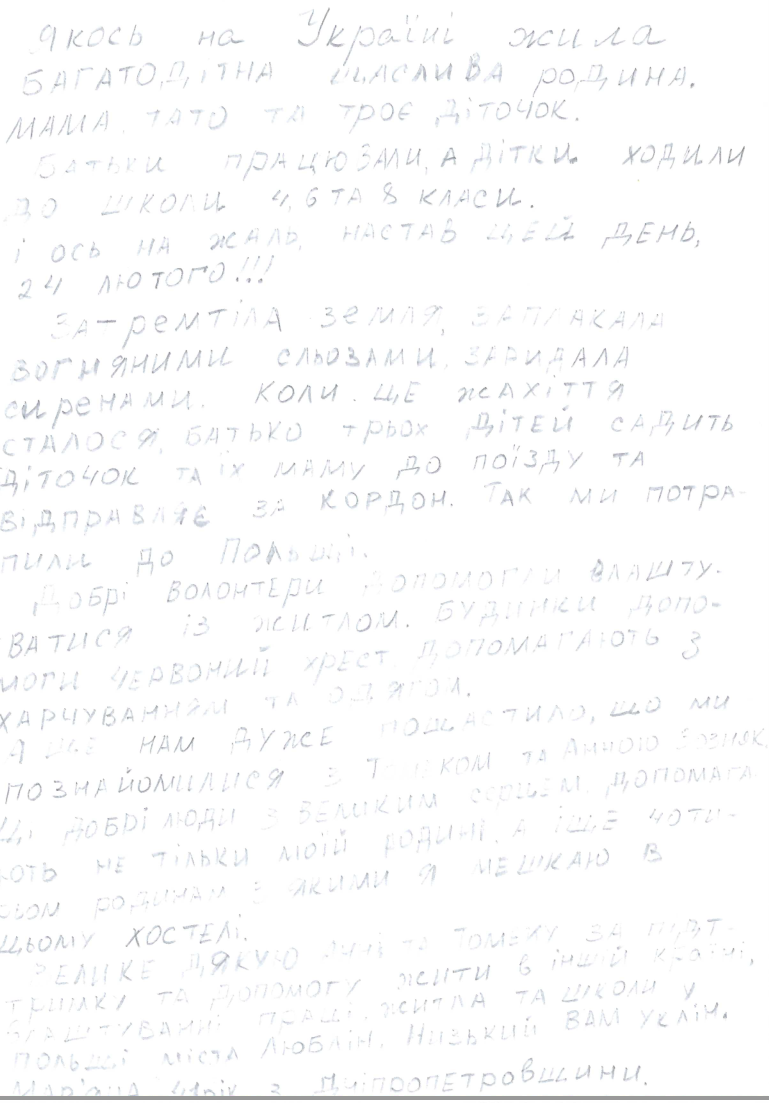 якось на Україні жила
БАГАТОДІТНА ЩАСЛИВА родИНА.
МАМА, ТАТО ТА ТРОЄ ДІТОЧОК.
БАТЬКИ ПРАЦЮВАЛИ, А ДІТКИ ХОДИЛИ
ДО ШКОЛИ 4,6 ТА 8 КЛАСИ.
І ОСЬ НА ЖАЛЬ, НАСТАВ ЦЕЙ ДЕНЬ,
24 ЛЮТОГО!!!
ЗАТремТІЛА ЗЕМЛЯ, ЗАПЛАКАЛА
ВОГНЯНИМИ СЛЬОЗАМИ, ЗАРИДАЛА
сиреНАМИ. КОЛИ ЦЕ ЖАХІТТЯ
СТАЛОСЯ, БАТЬКО ТРЬОХ ДІТЕЙ САДИТЬ
ДІТОЧОК ТА ЇХ МАМУ ДО ПОЇЗДУ ТА
ВІДПРАВЛЯЄ ЗА КОРДОН. ТАК МИ ПОТРА-
ПИЛИ ДО ПОЛЬЩІ.
ДОБРІ ВОЛОНТЕРИ ДОПОМОГЛИ ВЛАШТУ-
ВАТИСЯ ІЗ ЖИТЛОМ. БУДИНКИ ДОПО-
МОГИ ЧЕРВОНИЙ ХРЕСТ, ДОПОМАГАЮТЬ З
ХАРЧУВАННЯМ ТА ОДЯГОМ.
А ЩЕ НАМ ДУЖЕ ПОЩАСТИЛО, ЩО МИ
ПОЗНАЙОМИЛИСЯ З ТОМЕКОМ ТА АННОЮ
ЦІ ДОБРІ ЛЮДИ З ВЕЛИКИМ СЕРЦЕМ, ДОПОМАГА-
ЮТЬ НЕ ТІЛЬКИ МОЇЙ РОДИНІ, А ІЩЕ ЧОТИ-
РЬОМ РОДИНАМ З ЯКИМИ Я МЕШКАЮ В
ЦЬОМУ ХОСТЕЛІ.
ВЕЛИКЕ ДЯКУЮ АННІ ТА ТОМЕКУ ЗА ПІДТ-
РИМКУ ТА ДОПОМОГУ ЖИТИ В ІНШІЙ КРАЇНІ,
ВЛАШТУВАННІ ПРАЦІ, ЖИТЛА ТА ШКОЛИ У
ПОЛЬЩІ МІСТА ЛЮБЛІН. НИЗЬКИЙ ВАМ УКЛІН.
МАР'ЯНА 41рік З ДНІПРОПЕТРОВЩИНИ.